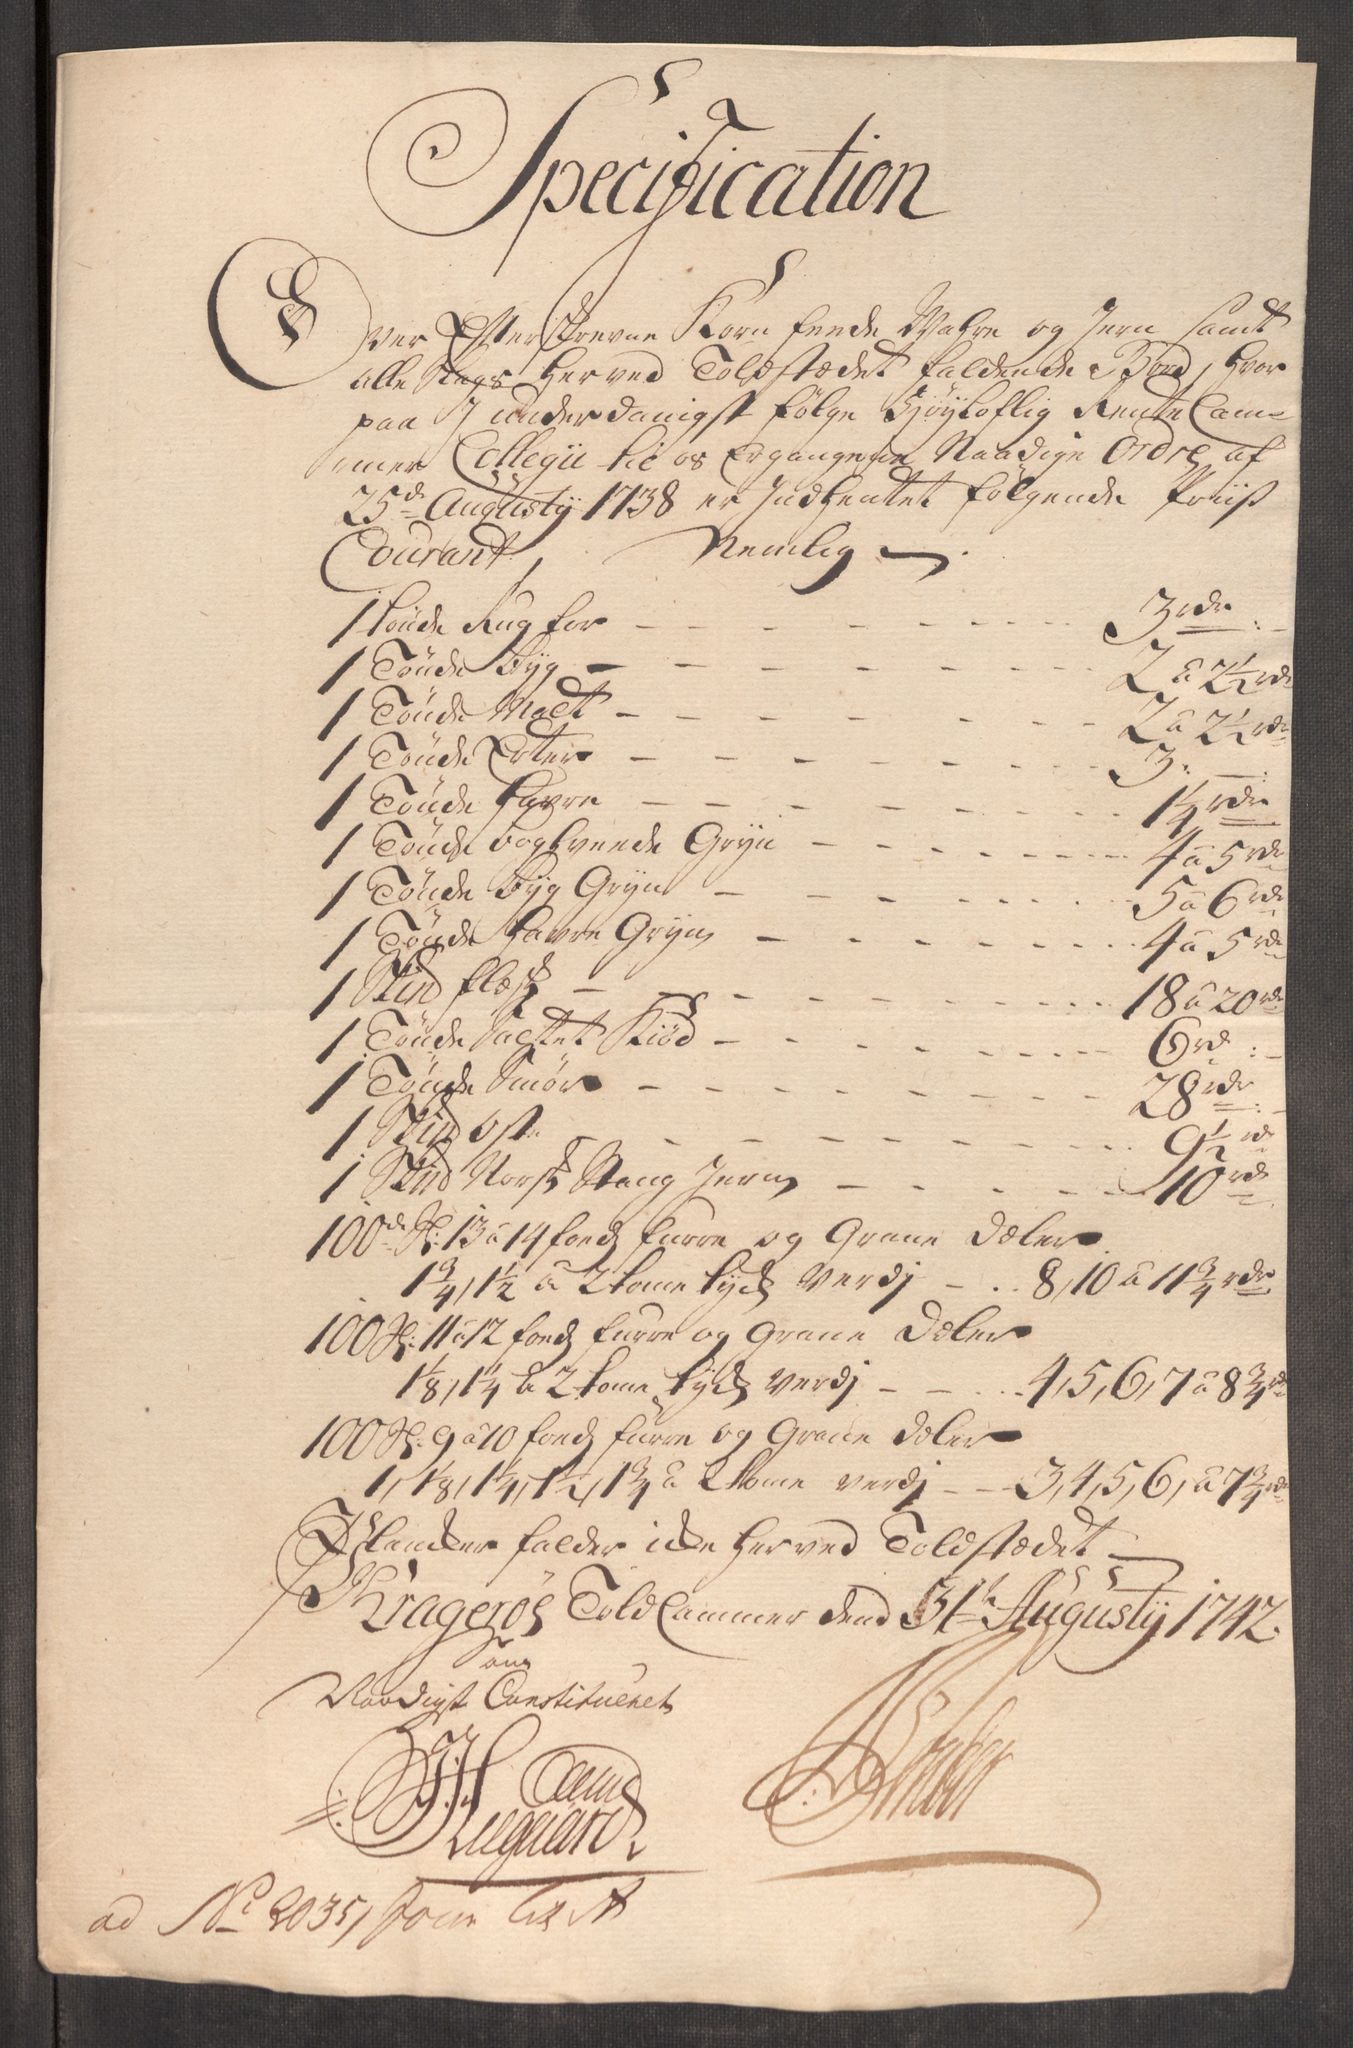 Specification
Over Efterskrevne Korn feede Wahre og Jern samt
alle Slags Herved Toldstædet faldende Bord, hvor
paa I underdanigst følge Høyloflig Rente Cam-
mer Collegii til os Ergangene Naadige Ordre af
25de Augusty 1738 er Indhentet følgende Priis
Courant, Nemlig
1 Tønde Rug for 3 rdr
1 Tønde Byg 2 a 2½ rdr
1 Tønde Malt 2 a 2½ rdr
1 Tønde Erter 3
1 Tønde Havre 1¼ rdr
1 Tønde boghvede Gryn 4 a 5 rdr
1 Tønde Byg Gryn 5 a 6 rdr
1 Tønde Havre Gryn 4 a 5 rdr
1 Sk℔ flæsk 18 a 20 rdr
1 Tønde Saltet Kiød 6 rd
1 Tønde Smør 28 rdr
1 Sk℔ ost 9½ rd
1 Sk℔ Norsk Stang Jern 10 rdr
100de St: 13 a 14 foeds furre og Grane Deler
1¾, 1½ a 2 tome tyck Verdj 8, 10 a 11¾ rdr
100 St: 11 a 12 foeds furre og Grane Deler
1⅛, 1¼ a 2 tome tyck verdj 4, 5, 6, 7 a 8¾ rd
100 St: 9 a 10 foeds furre og Grane deler
1, 1⅛, 1¼, 1½, 1¾ a 2 tome verdj 3, 4, 5, 6, a 7¾ rdr
Plancker falder icke Herved Toldstædet
Kragerøes Told Cammer dend 31te Augusty 1742.
Som
Naadigst Constitueret
ad No 2035